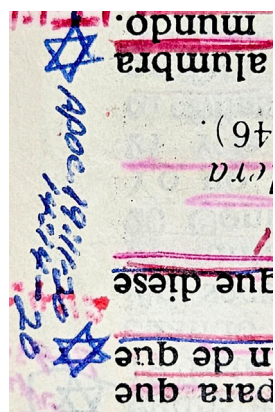 para que
n de que
que diese
46).
alumbra
mundo.
Apoc 19:11-20
14:14-20